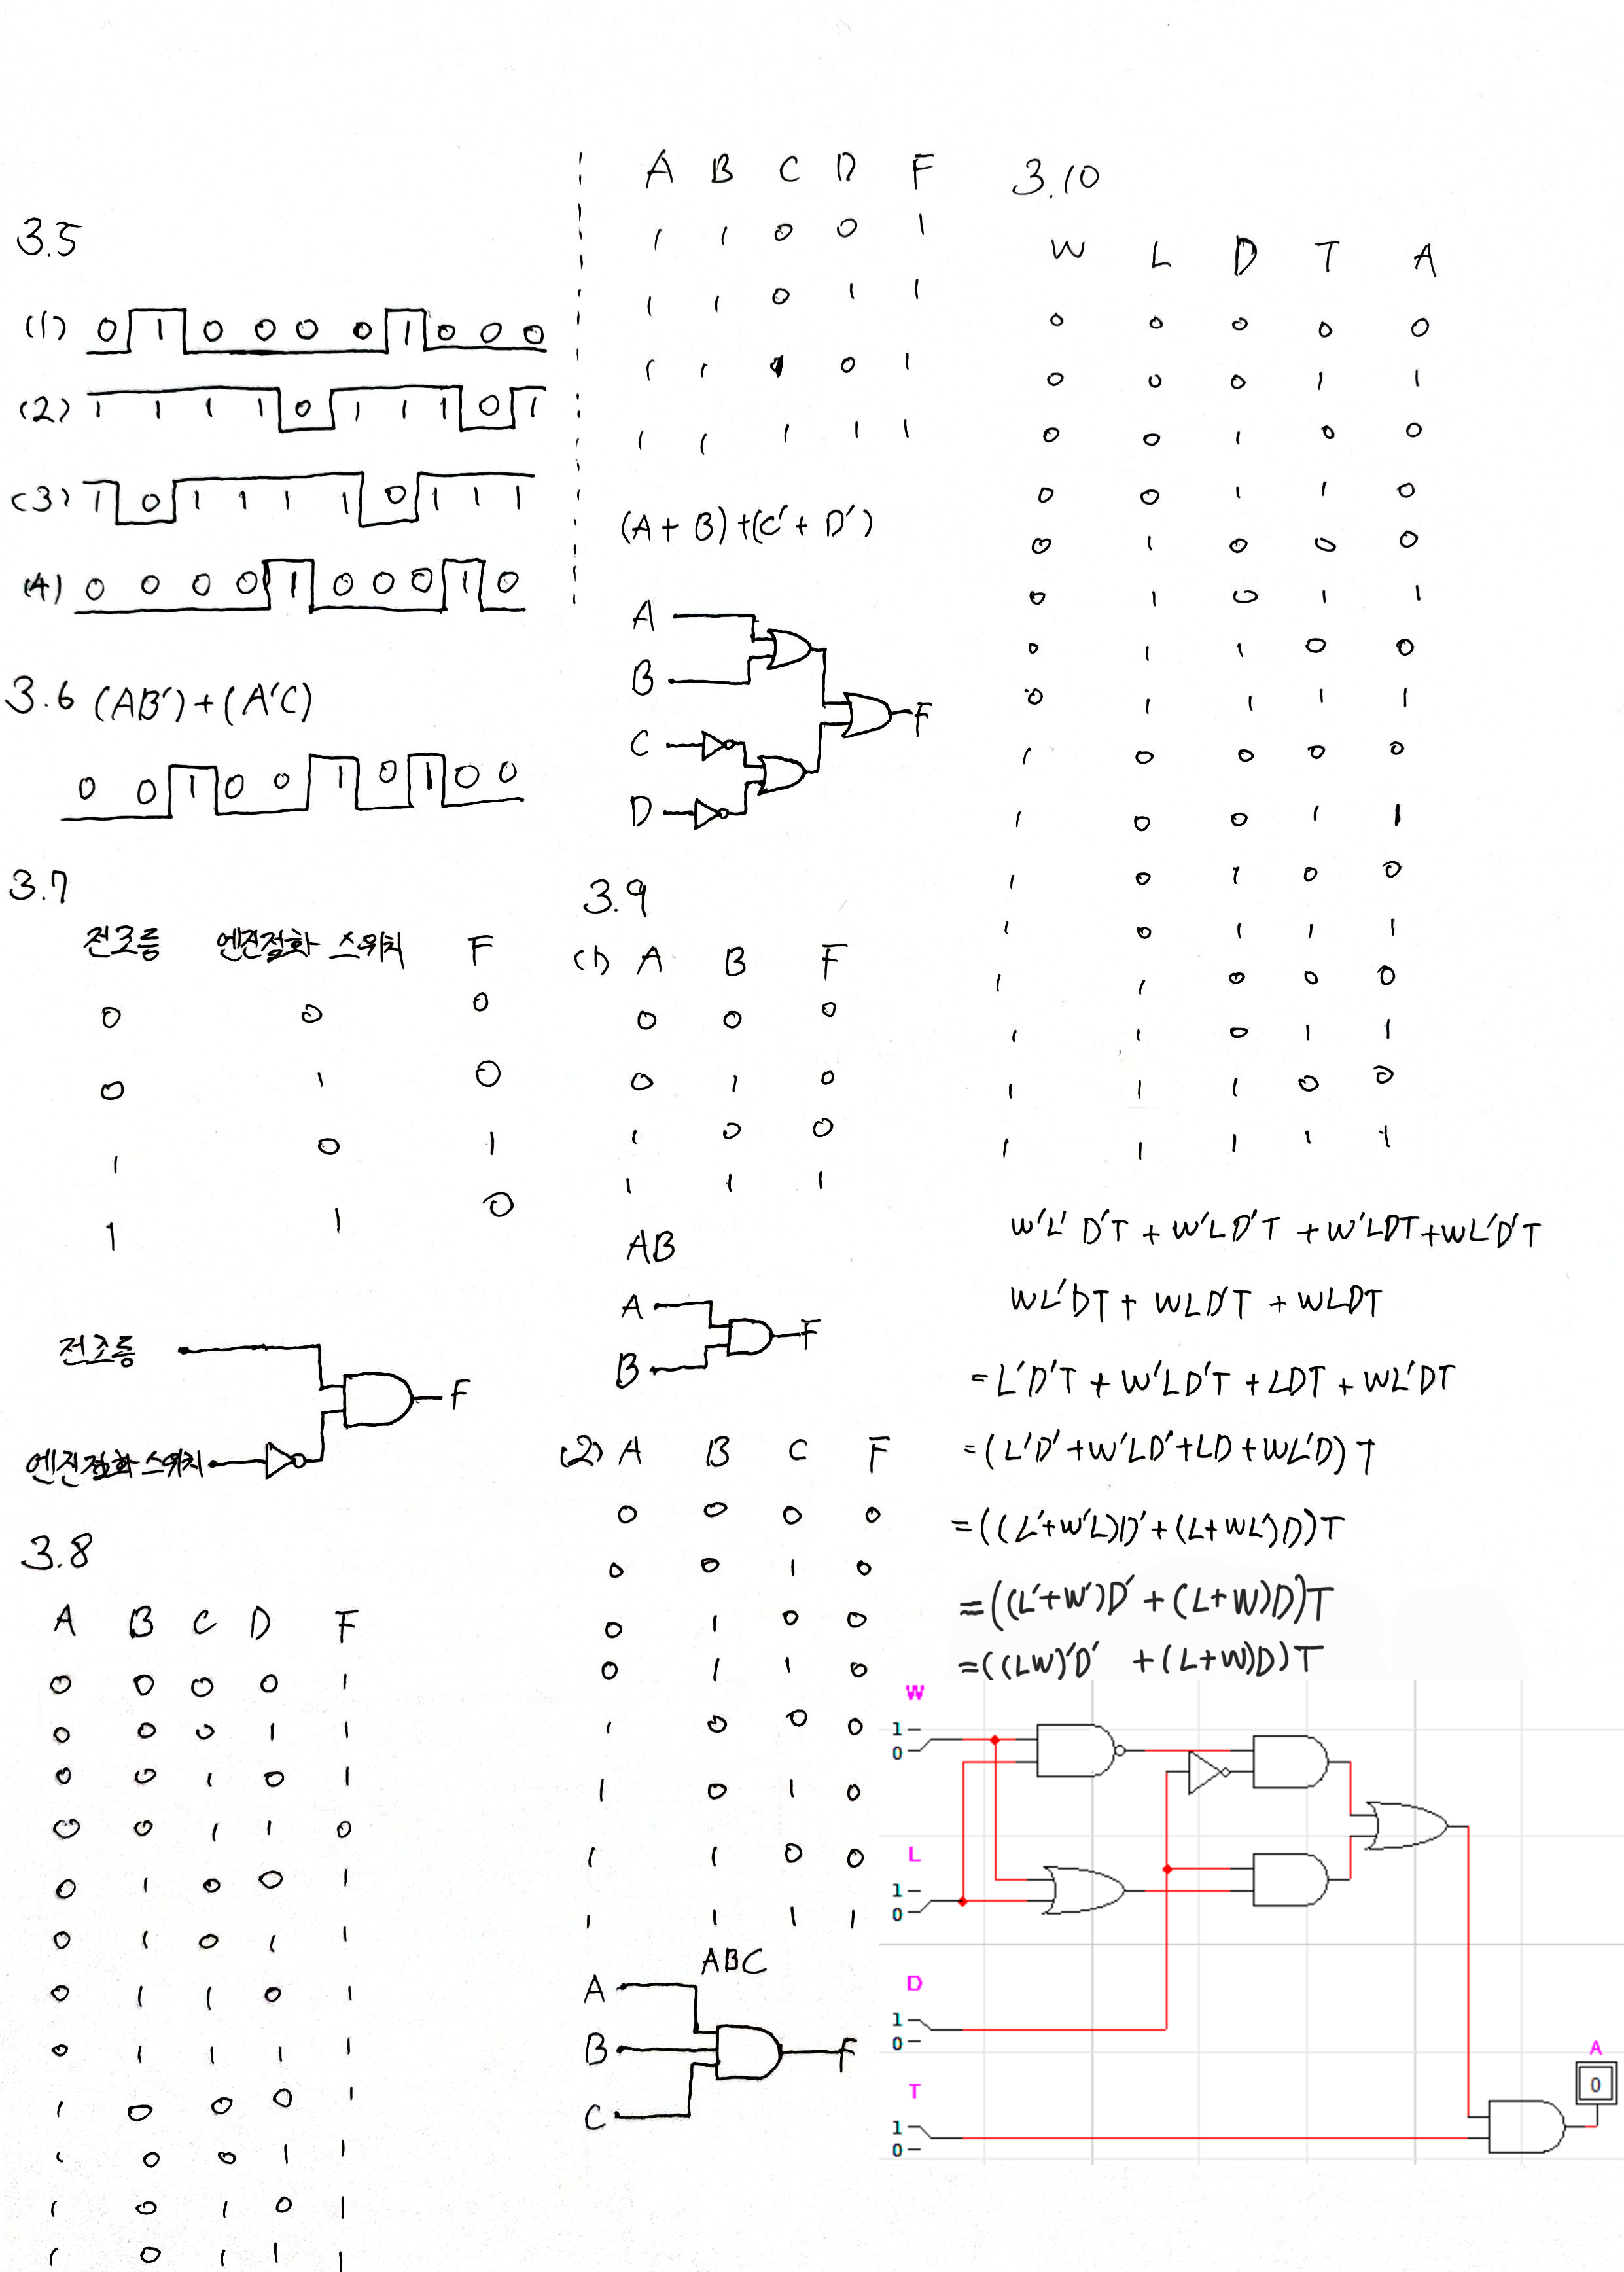 3.5
(1) 0 1 0 0 0 0 1 0 0 0
(2) 1 1 1 1 0 1 1 1 0 1
(3) 1 0 1 1 1 1 0 1 1 1
(4) 0 0 0 0 1 0 0 0 1 0
3.6 (AB')+(A'C)
0 0 1 0 0 1 0 1 0 0
3.7
전조등 엔진점화 스위치 F
0 0 0
0 1 0
1 0 1
1 1 0
전조등
F
엔진점화 스위치
3.8
A B C D F
0 0 0 0 1
0 0 0 1 1
0 0 1 0 1
0 0 1 1 0
0 1 0 0 1
0 1 0 1 1
0 1 1 0 1
0 1 1 1 1
1 0 0 0 1
1 0 0 1 1
1 0 1 0 1
1 0 1 1 1
A B C D F
1 1 0 0 1
1 1 0 1 1
1 1 1 0 1
1 1 1 1 1
(A+B)+(C'+D')
A
B
F
C
D
3.9
(1) A B F
0 0 0
0 1 0
1 0 0
1 1 1
AB
A
F
B
(2) A B C F
0 0 0 0
0 0 1 0
0 1 0 0
0 1 1 0
1 0 0 0
1 0 1 0
1 1 0 0
1 1 1 1
ABC
A
B
F
C
3.10
W L D T A
0 0 0 0 0
0 0 0 1 1
0 0 1 0 0
0 0 1 1 0
0 1 0 0 0
0 1 0 1 1
0 1 1 0 0
0 1 1 1 1
1 0 0 0 0
1 0 0 1 1
1 0 1 0 0
1 0 1 1 1
1 1 0 0 0
1 1 0 1 1
1 1 1 0 0
1 1 1 1 1
W'L'D'T + W'LD'T + W'LDT+WL'D'T
WL'DT + WLD'T + WLDT
=L'D'T + W'LD'T + LDT + WL'DT
=(L'D'+W'LD'+LD+WL'D)T
=((L'+W'L)D'+(L+WL')D)T
=((L'+W')D'+(L+W)D)T
=((LW)'D' +(L+W)D)T
W
1
0
L
1
0
D
1
0
A
0
T
1
0